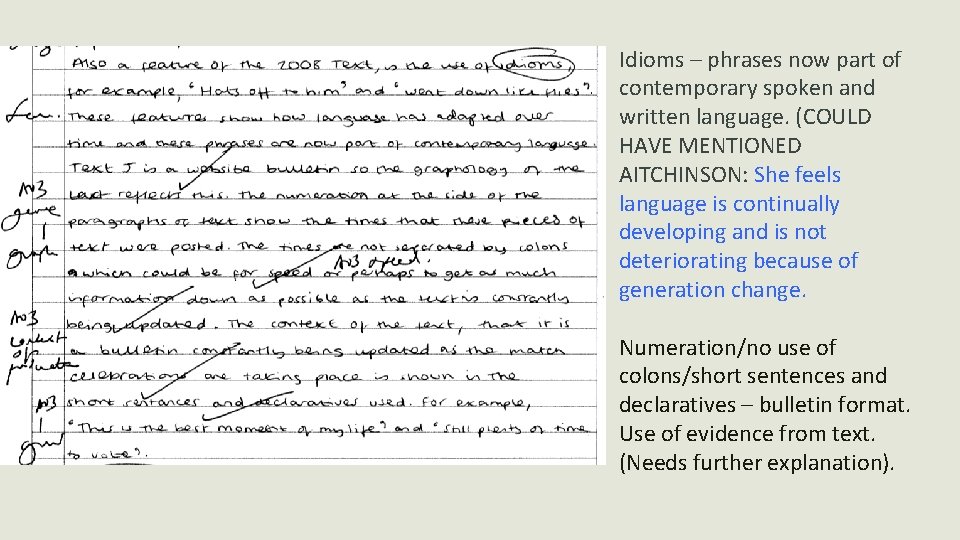 Also a feature of the 2008 Text, is the use of idioms,
for example, "Hats off to him" and "went down like flies".
These features show how language has adapted over
time and these phrases are now part of contemporary language.
Text J is a website bulletin so the graphology of the
text reflects this. The numeration at the side of the
paragraphs of text show the times that these pieces of
text were posted. The times are not separated by colons
which could be for speed or perhaps to get as much
information down as possible as the text is constantly
being updated. The context of the text, that it is
a bulletin constantly being updated as the match
celebrations are taking place is shown in the
short sentances and declaratives used. For example,
"This is the best moment of my life" and "Still plenty of time
to vote".
A03
genre
graph
A03
A03
context
of
A03
Idioms – phrases now part of
contemporary spoken and
written language. (COULD
HAVE MENTIONED
AITCHINSON: She feels
language is continually
developing and is not
deteriorating because of
generation change.
Numeration/no use of
colons/short sentences and
declaratives – bulletin format.
Use of evidence from text.
(Needs further explanation).